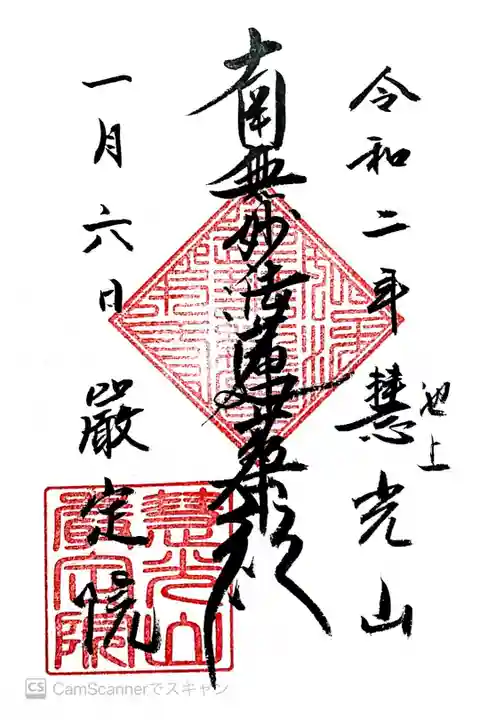 令和二年 慧光山
池上
南無妙法蓮華経
一月六日 嚴定院
慧光山
嚴定院
CS CamScannerでスキャン